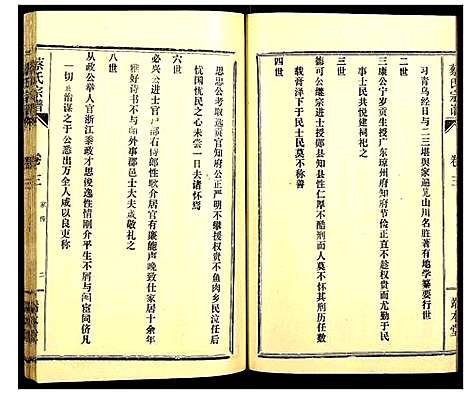 蔡氏宗譜
卷三
端本堂
習青烏經日与二三堪輿家遍览山川名胜著有地学纂要行世
二世
三康公宁岁贡生授广东琼州府知府节俭正直不趁权贵而尤勤于民
事士民共悦建祠祀之
三世
德可公继宗进士授郧县知县性仁厚不酷刑而人莫不怀其刑历任数
载膏泽下于民士民莫不称善
四世
思忠公考取选贡官主簿严明不攀援权贵不鱼肉乡民泣任后
忧国忧民之心未尝一日夫诸怀焉
六世
必兴公进士官户部右侍郎性耿介居官有廉能声晚致仕家居十余年
雅好诗书不与外事郡邑士大夫咸敬礼之
八世
从政公举人官浙江参政才思浚逸性情刚介平生不屑与阉宦同侪凡
一切治谋之于公悉出万全人咸以良吏称
蔡氏宗譜
卷三
家传
二